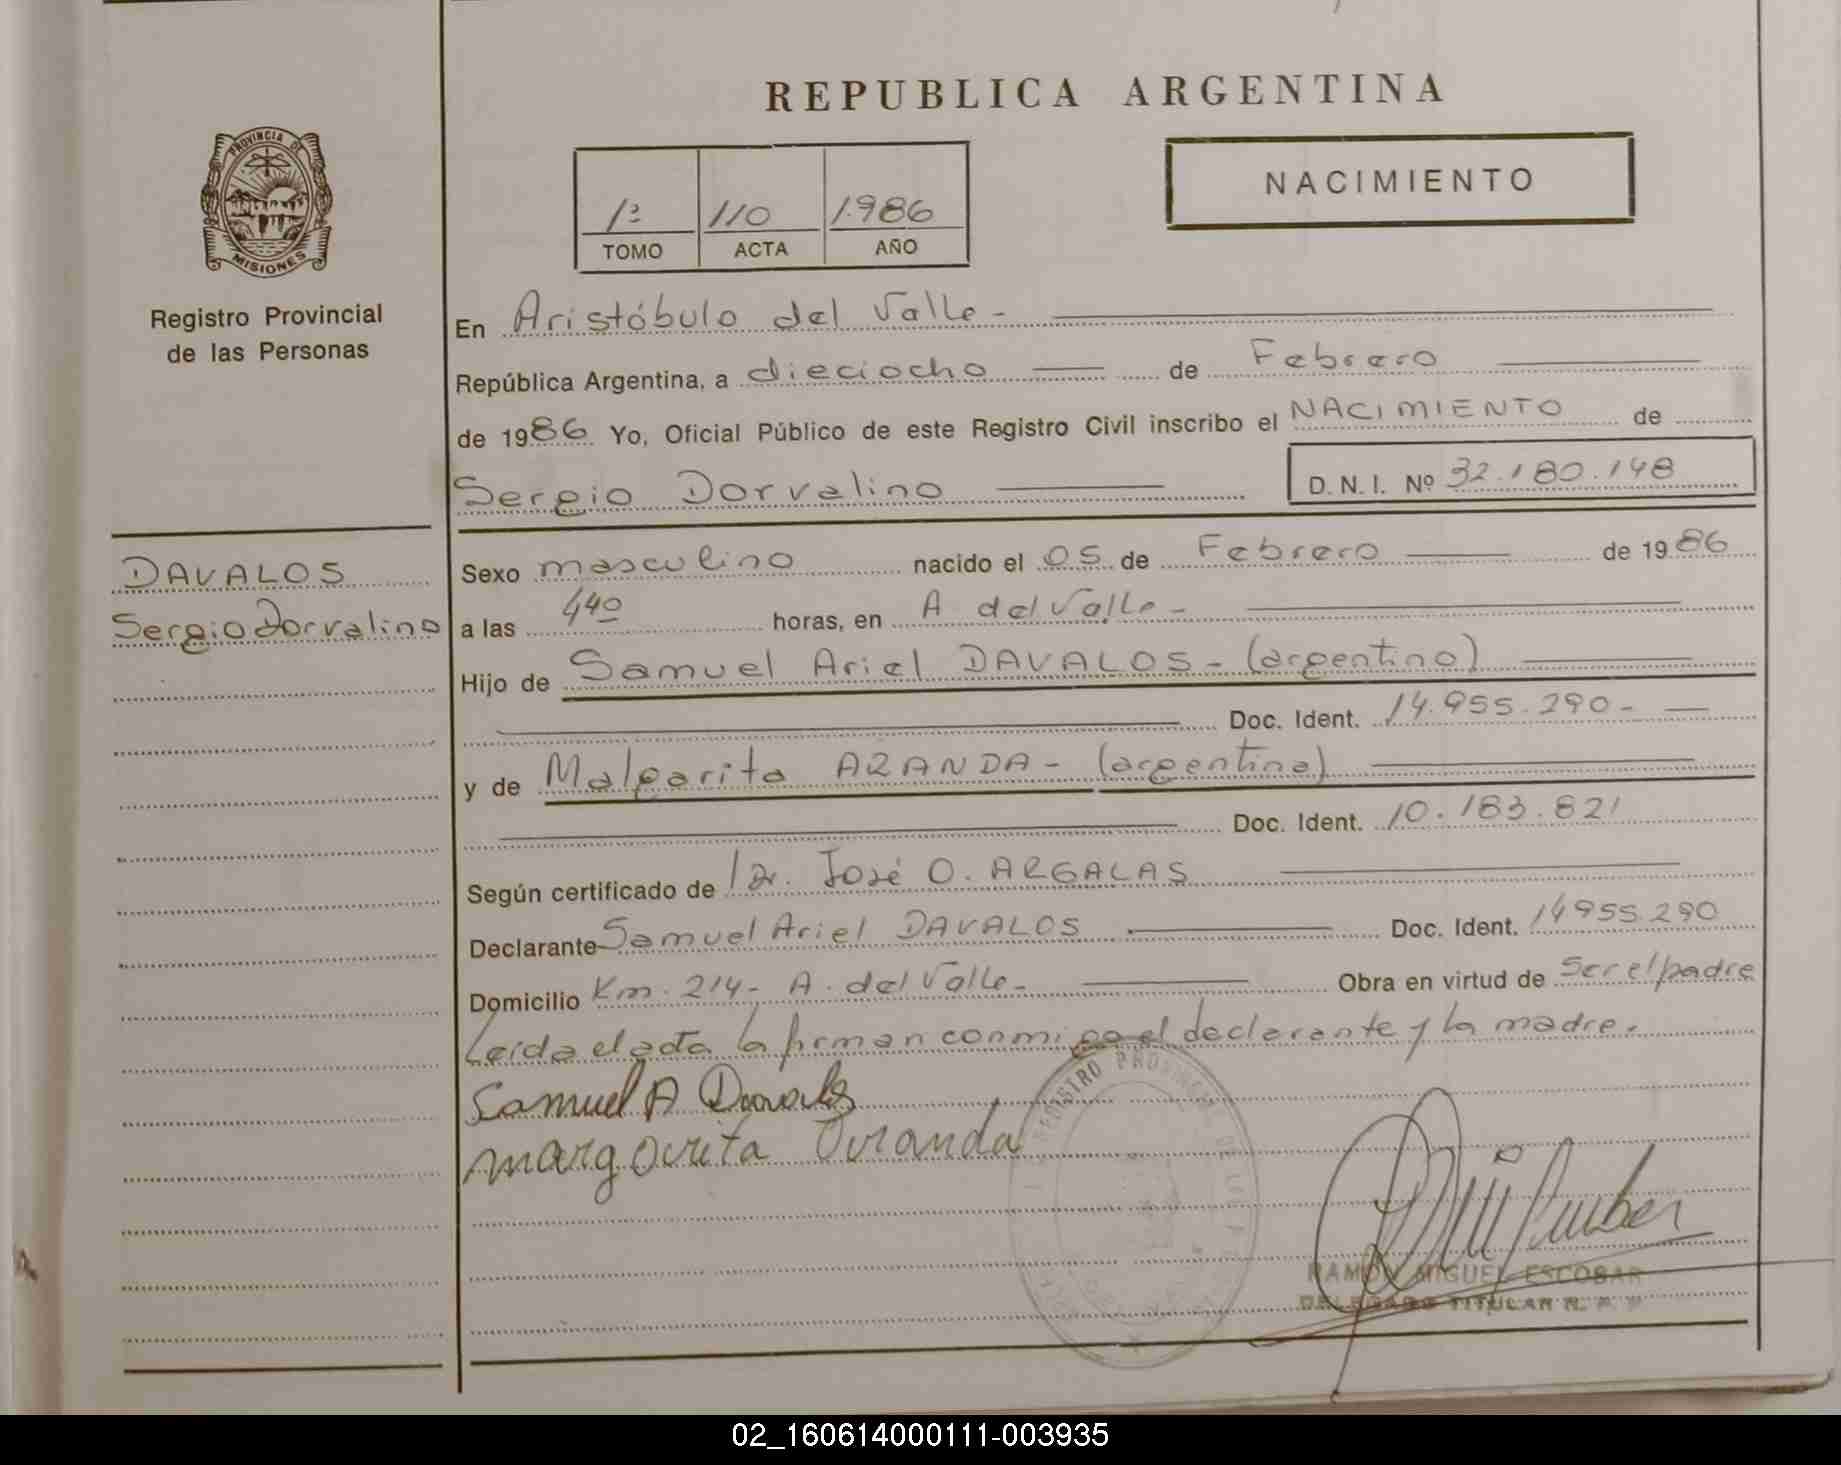 REPUBLICA ARGENTINA
PROVINCIA DE
MISIONES
Registro Provincial
de las Personas
1º 110 1986
TOMO ACTA AÑO
NACIMIENTO
En Aristóbulo del Valle -
República Argentina, a dieciocho de Febrero
de 1986 Yo, Oficial Público de este Registro Civil inscribo el NACIMIENTO de
Sergio Dorvalino D.N.I. Nº 32.180.148
DAVALOS
Sergio Dorvalino
Sexo masculino nacido el 05 de Febrero de 1986
a las 440 horas, en A del Valle -
Hijo de Samuel Ariel DAVALOS - (argentino)
Doc. Ident. 14.955.290 -
y de Malgarita ARANDA - (argentina)
Doc. Ident. 10.183.821
Según certificado de Dr. José O. ARGALAS
Declarante Samuel Ariel DAVALOS Doc. Ident. 14955.290
Domicilio Km. 214 - A. del Valle - Obra en virtud de ser el padre
Leída el acta la firman conmigo el declarante y la madre.
Samuel A Davalos
margarita Aranda
REGISTRO PROVINCIAL DE LAS
RAMON MIGUEL ESCOBAR
DELEGADO TITULAR R. P. P.
02_160614000111-003935